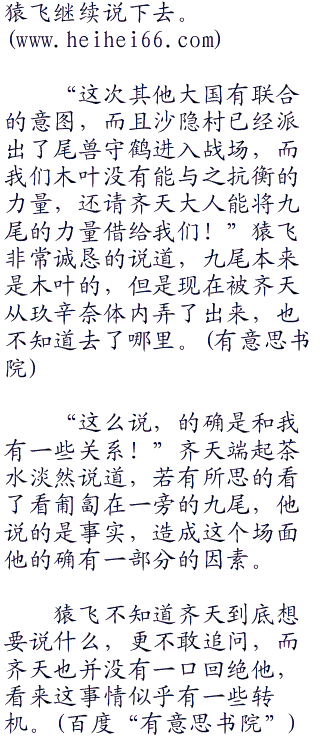 猿飞继续说下去。
(www.heihei66.com)
“这次其他大国有联合
的意图，而且沙隐村已经派
出了尾兽守鹤进入战场，而
我们木叶没有能与之抗衡的
力量，还请齐天大人能将九
尾的力量借给我们！”猿飞
非常诚恳的说道，九尾本来
是木叶的，但是现在被齐天
从玖辛奈体内弄了出来，也
不知道去了哪里。(有意思书
院)
“这么说，的确是和我
有一些关系！”齐天端起茶
水淡然说道，若有所思的看
了看匍匐在一旁的九尾，他
说的是事实，造成这个场面
他的确有一部分的因素。
猿飞不知道齐天到底想
要说什么，更不敢追问，而
齐天也并没有一口回绝他，
看来这事情似乎有一些转
机。(百度“有意思书院”)